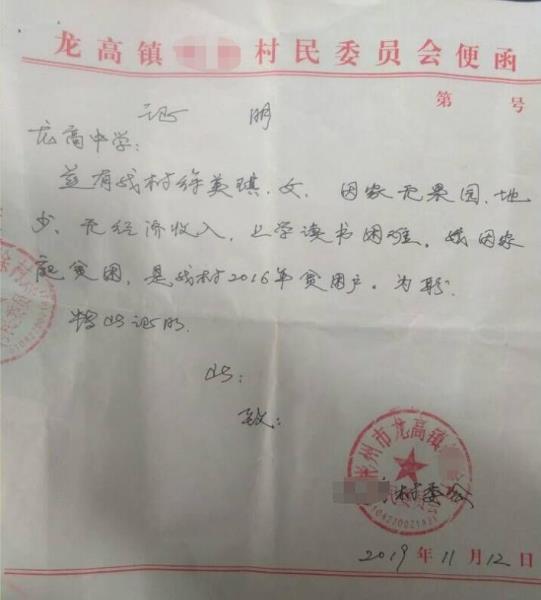 龙高镇 村民委员会便函
第 号
证 明
龙高中学：
兹有我村徐美琪，女，因家无果园，地
少，无经济收入，上学读书困难，
贫困，是我村2016年贫困户。为盼。
特此证明
此：
致：
彬州市龙高镇
村委会
2019年11月12日